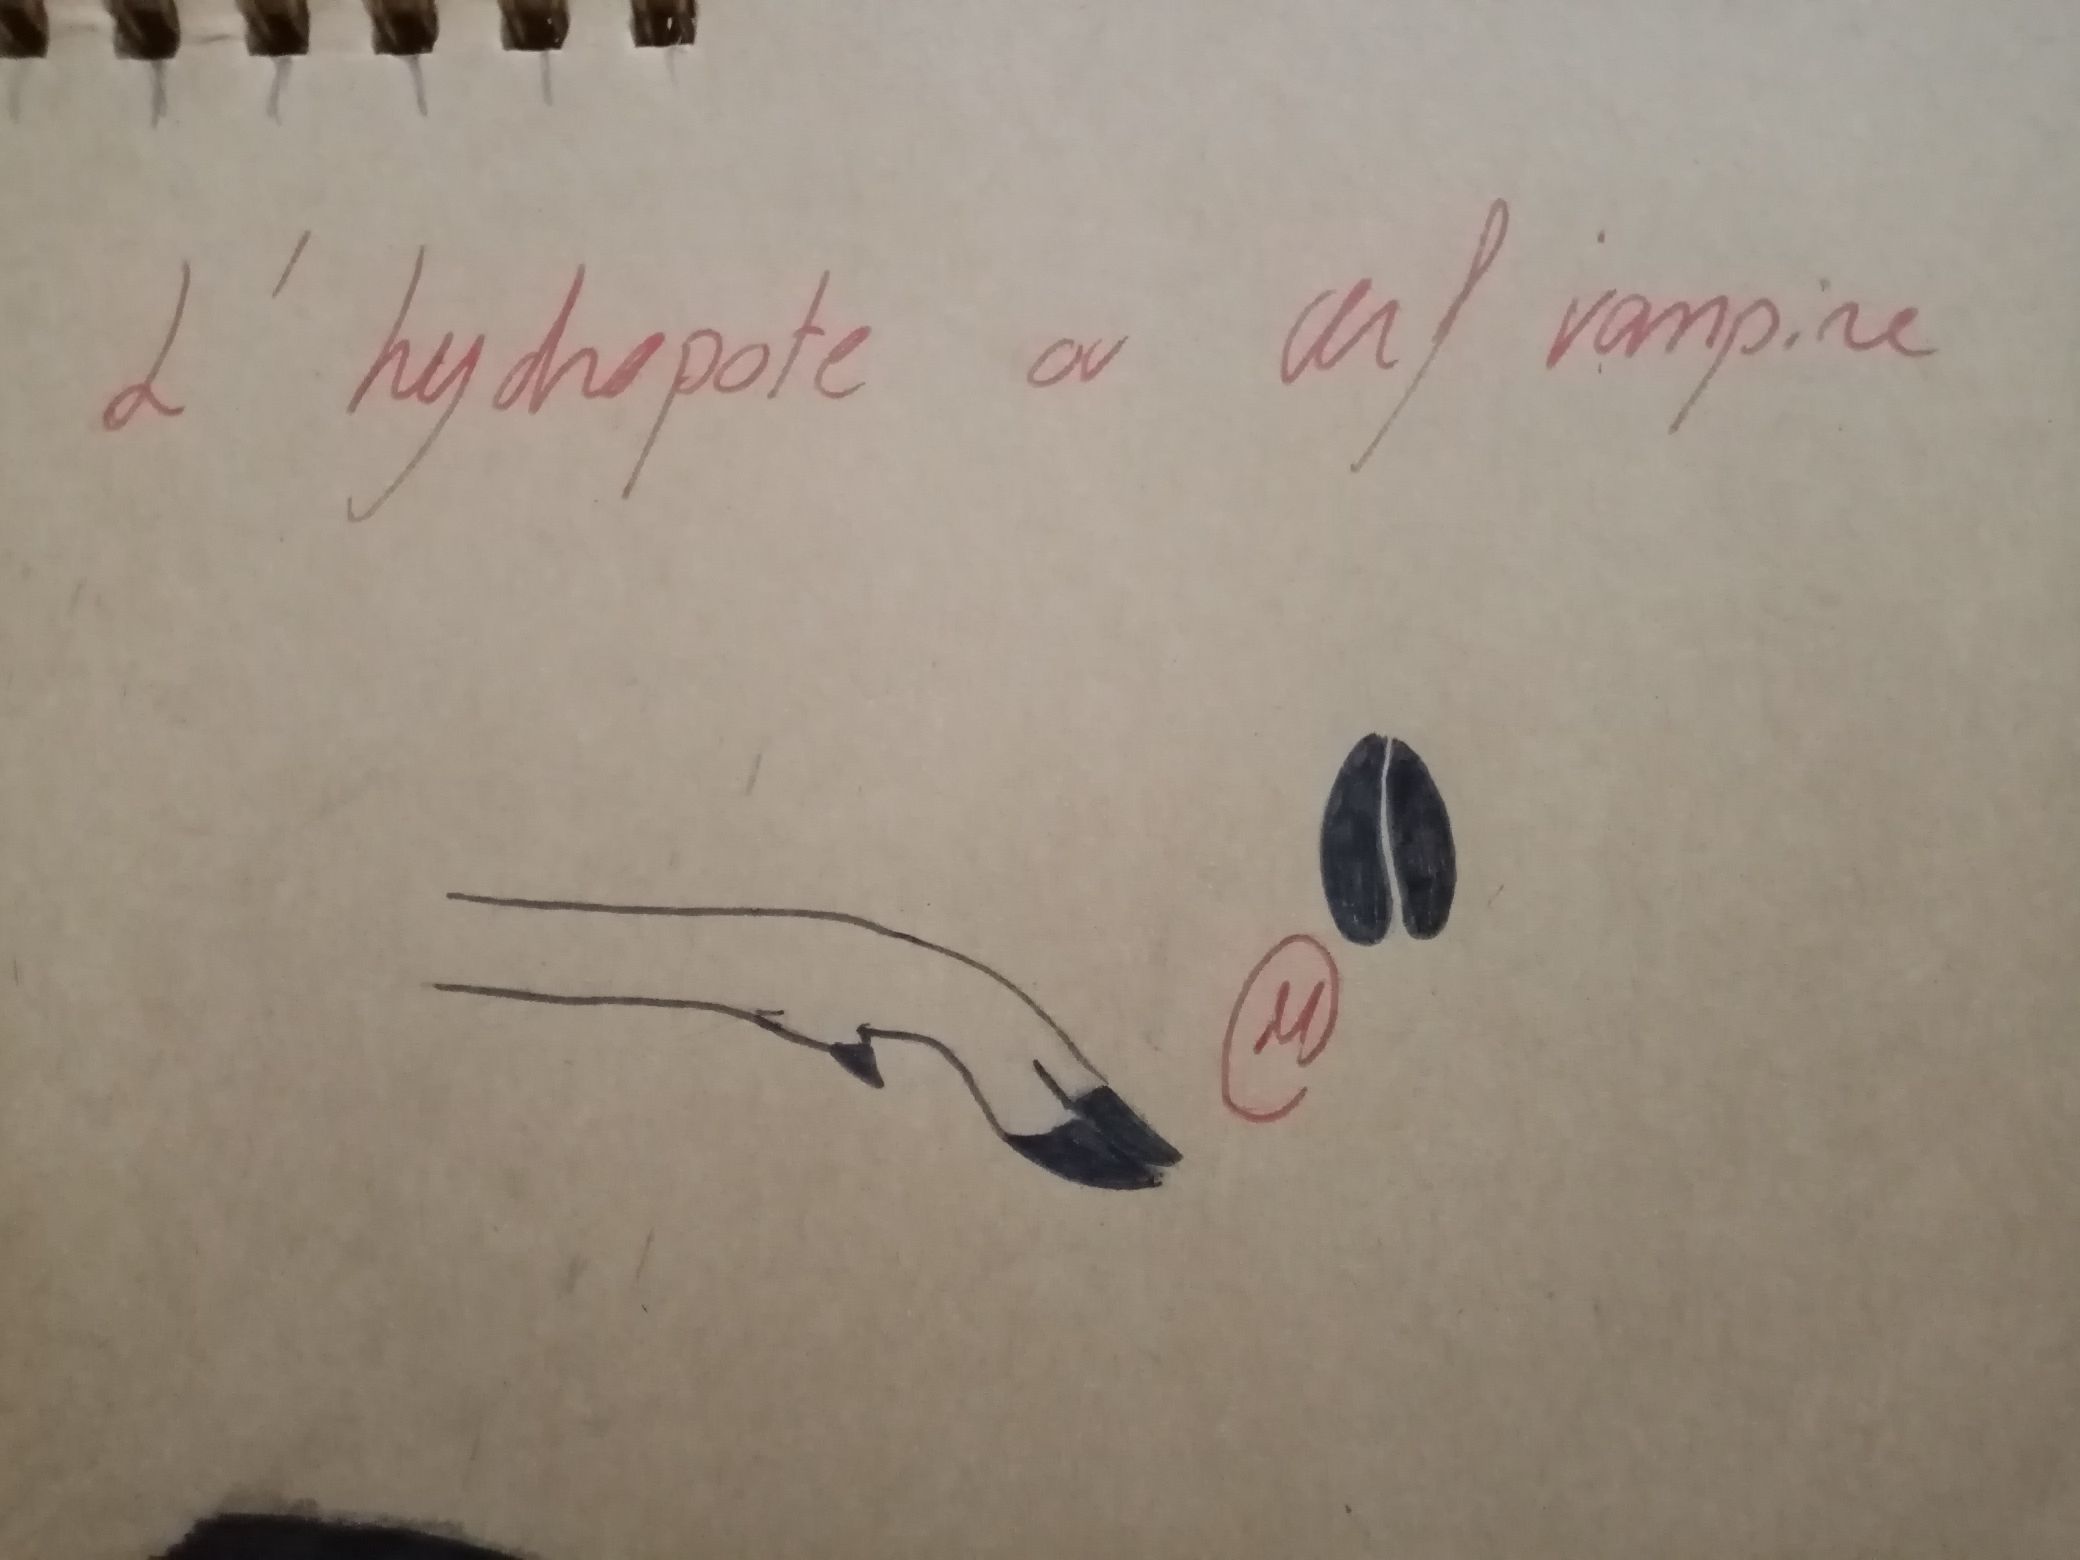 L'hydropote ou cerf vampire
M